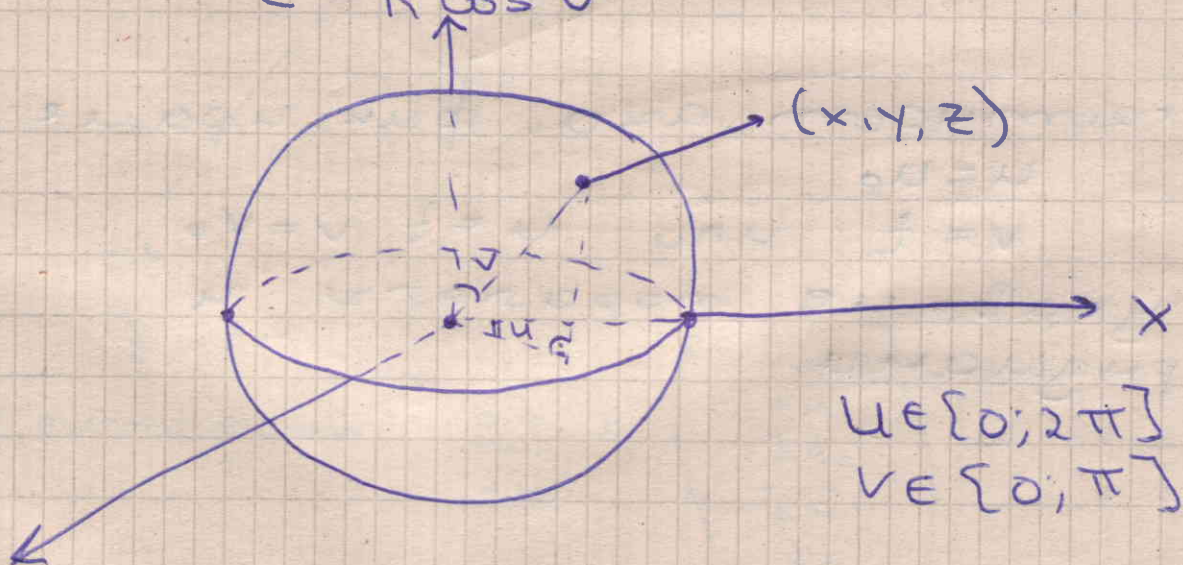 R cos v
(x, y, z)
v
u
x
u ∈ [0; 2π]
v ∈ [0, π]